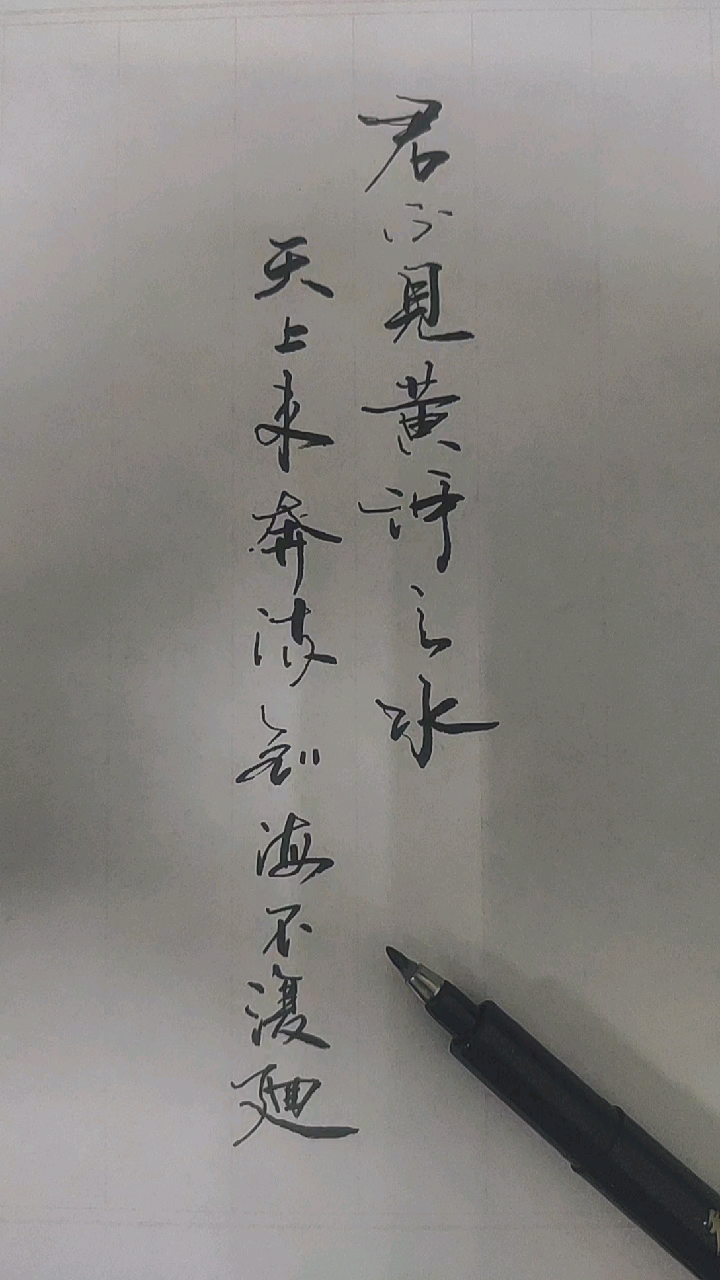 君不見黃河之水
天上來奔流到海不復迴